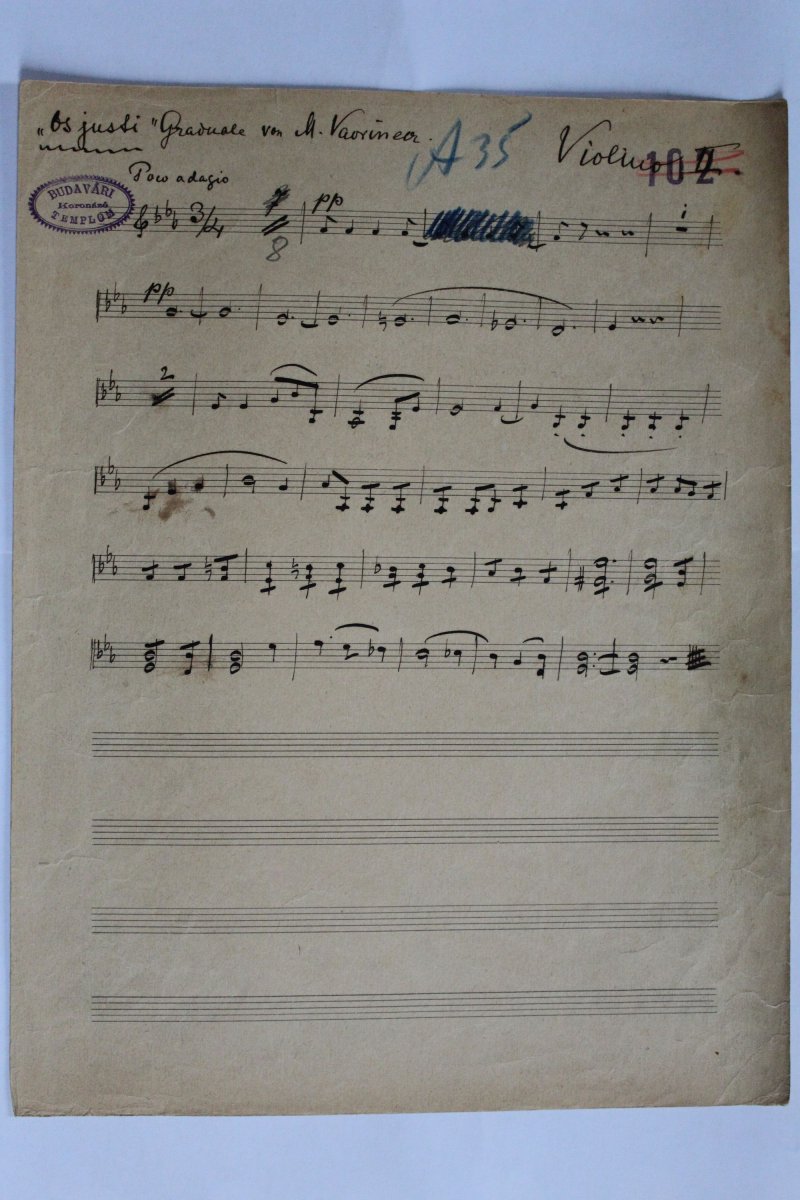 „Os justi" Graduale von M. Vavrinecz.
A 35
Violino II.
102
Poco adagio
BUDAVÁRI
Koronázó
TEMPLOM
3/4
8
pp
1
pp
2